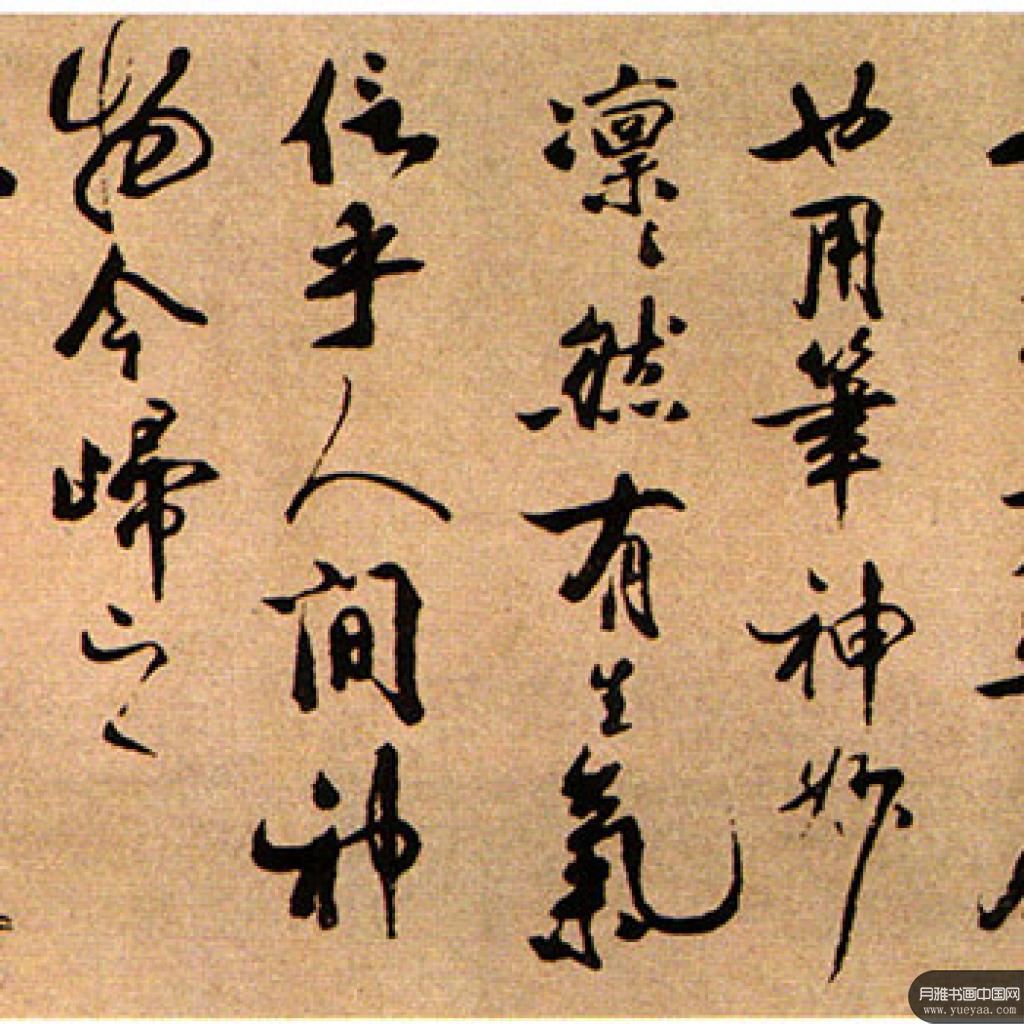 也用筆神妙
凜〻然有生氣
信乎人間神
物今歸之
月雅书画中国网
www.yueyaa.com